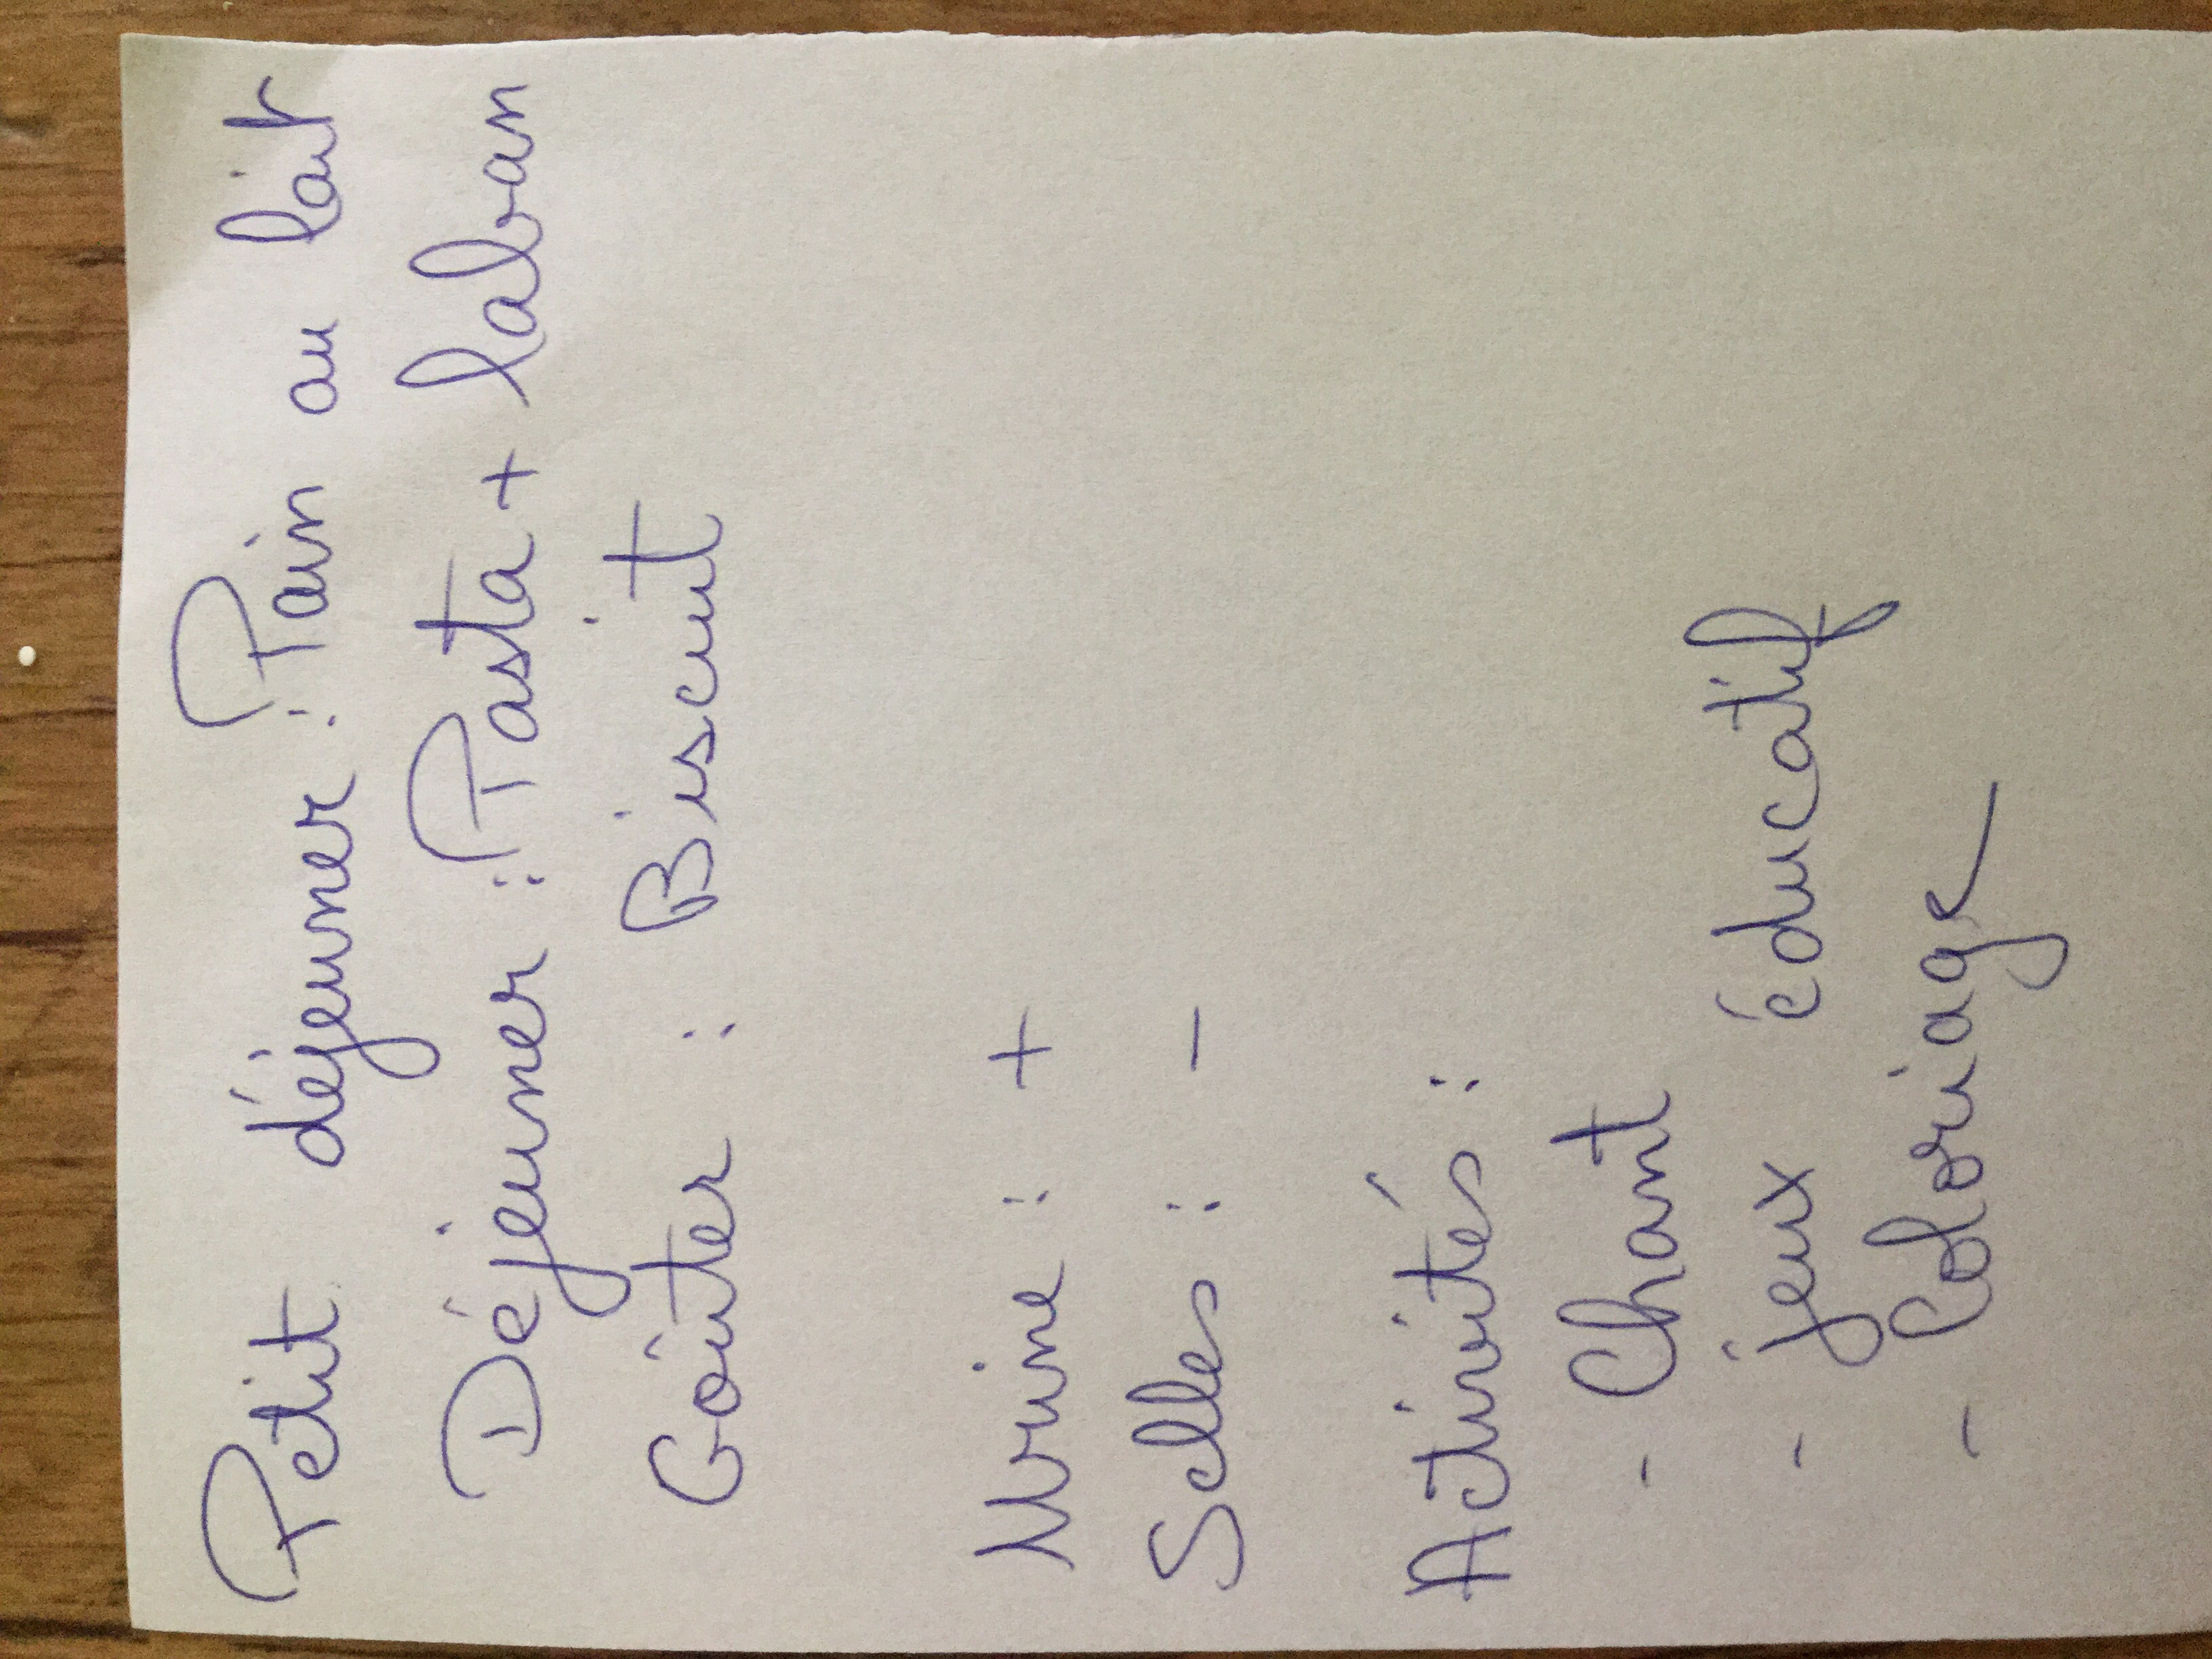 Petit déjeuner : Pain au lait
Déjeuner : Pasta + laban
Goûter : Biscuit
Urine : +
Selles : -
Activités :
- Chant
- jeux éducatif
- Coloriage